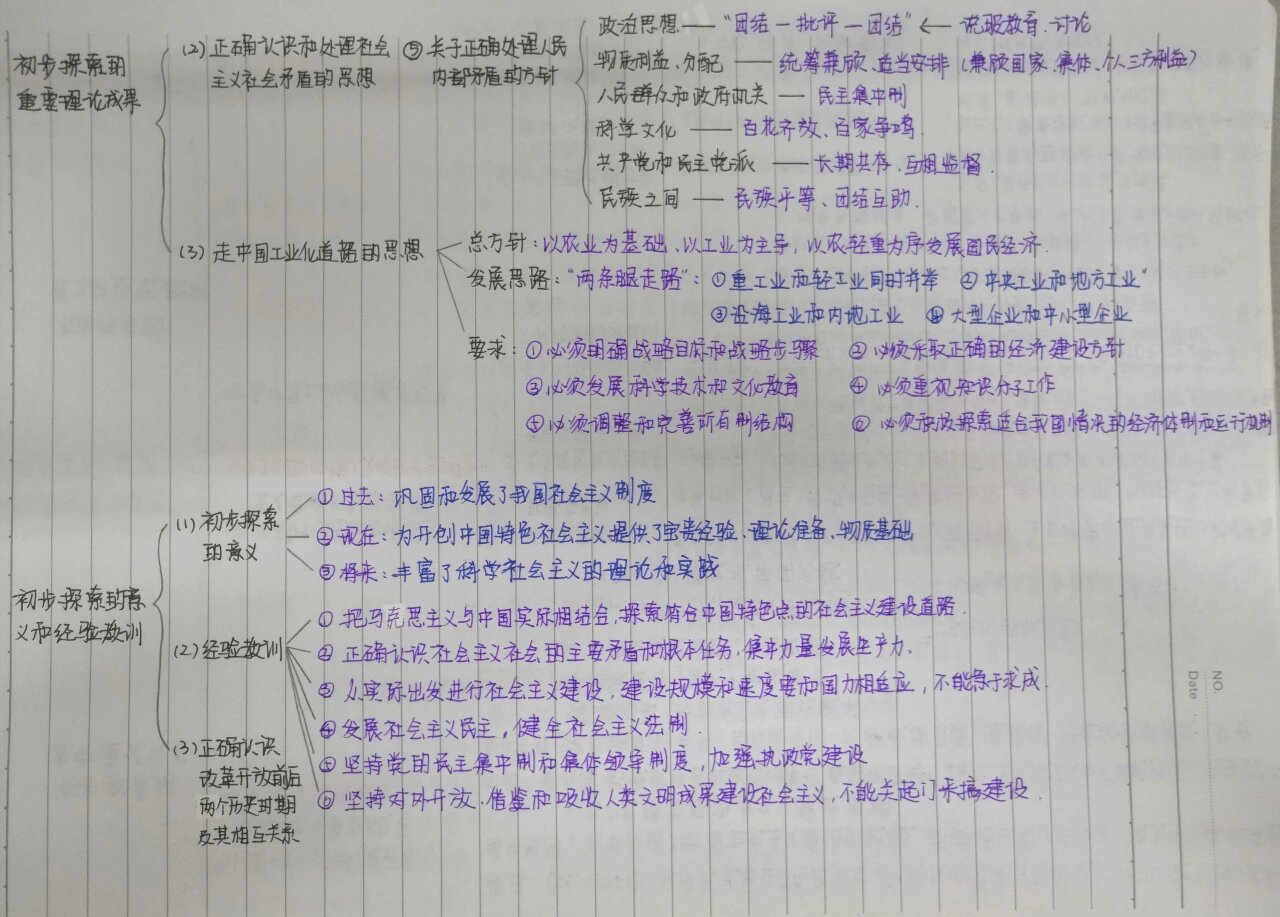 初步探索的
重要理论成果
(2) 正确认识和处理社会
主义社会矛盾的思想
⑤ 关于正确处理人民
内部矛盾的方针
政治思想 — “团结一批评一团结” ← 说服教育、讨论
物质利益、分配 — 统筹兼顾、适当安排 (兼顾国家、集体、个人三方利益)
人民群众和政府机关 — 民主集中制
科学文化 — 百花齐放、百家争鸣.
共产党和民主党派 — 长期共存、互相监督.
民族之间 — 民族平等、团结互助.
(3) 走中国工业化道路的思想
总方针: 以农业为基础、以工业为主导, 以农轻重为序发展国民经济.
发展思路: “两条腿走路”: ① 重工业和轻工业同时并举 ② 中央工业和地方工业
③ 沿海工业和内地工业 ④ 大型企业和中小型企业
要求: ① 必须明确战略目标和战略步骤 ② 必须采取正确的经济建设方针
③ 必须发展科学技术和文化教育 ④ 必须重视知识分子工作
⑤ 必须调整和完善所有制结构 ⑥ 必须积极探索适合我国情况的经济体制和运行机制
初步探索的意
义和经验教训
(1) 初步探索
的意义
① 过去: 巩固和发展了我国社会主义制度
② 现在: 为开创中国特色社会主义提供了宝贵经验、理论准备、物质基础
③ 将来: 丰富了科学社会主义的理论和实践
(2) 经验教训
① 把马克思主义与中国实际相结合, 探索符合中国特色点的社会主义建设道路.
② 正确认识社会主义社会的主要矛盾和根本任务, 集中力量发展生产力.
③ 从实际出发进行社会主义建设, 建设规模和速度要和国力相适应, 不能急于求成.
④ 发展社会主义民主, 健全社会主义法制.
⑤ 坚持党的民主集中制和集体领导制度, 加强执政党建设
⑥ 坚持对外开放. 借鉴和吸收人类文明成果建设社会主义, 不能关起门来搞建设.
(3) 正确认识
改革开放前后
两个历史时期
及其相互关系
NO.
Date